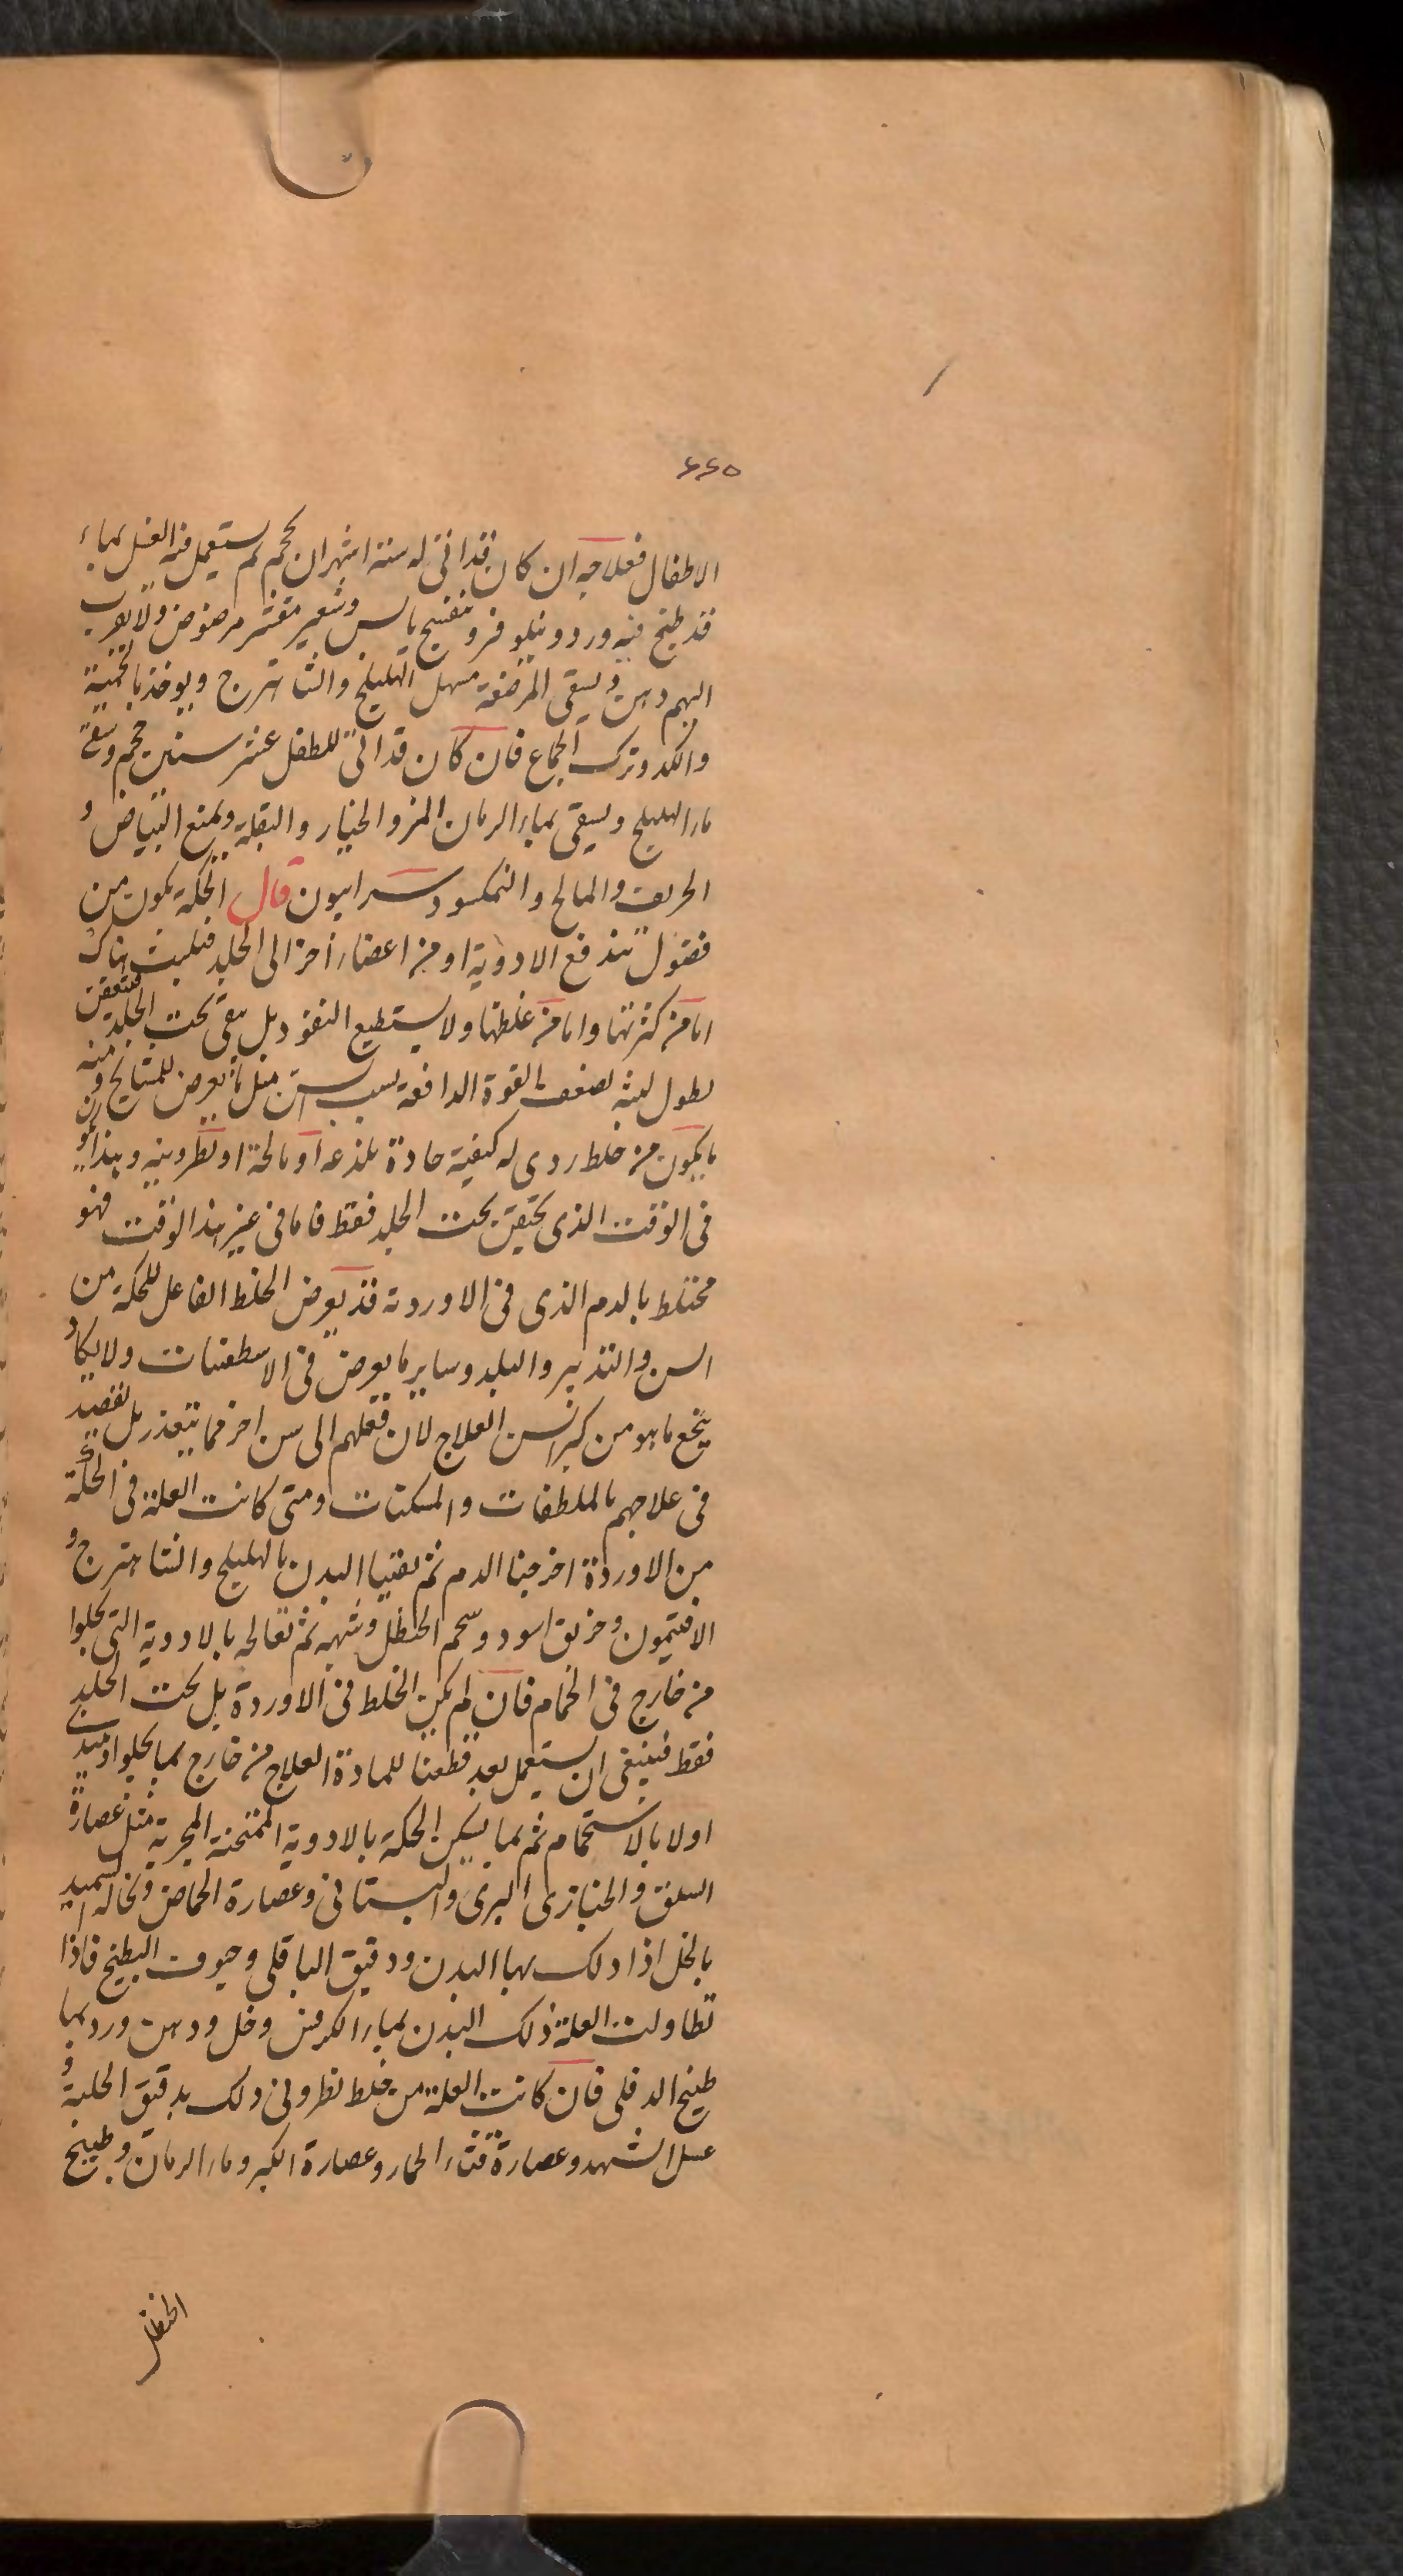 ۶۶۵
الاطفال فعلاجه ان كان قد اتى له ستة اشهر ان يحجم ثم يستعمل فيه الغسل بماء
قد طبخ فيه ورد ونيلوفر وبنفسج يابس وشعير مقشر مرضوض ولا يقرب
اليهم دهن ويسقى المرضعة مسهل الهليلج والشاهترج ويوخذ بالحمية
والكد وترك الجماع فان كان قد اتى للطفل عشر سنين حجم وسقى
ماء الهليلج ويسقى بماء الرمان المز والخيار والبقلة ويمنع البياض و
الحريف والمالح والنمكسود سرابيون قال الحكة يكون من
فضول تندفع الادوية او من اعضاء اخر الى الجلد فيلبث هناك
اما من كثرتها واما من غلظها ولا يستطيع النفوذ بل يبقى تحت الجلد فيتعفن
لطول لبثه لضعف القوة الدافعة بسبب السن مثل ما يعرض للمشايخ ومنه
ما يكون من خلط ردى له كيفية حادة يلذعه او مالحة او نطرونيه وهذا يكون
فى الوقت الذى يحتقن تحت الجلد فقط فاما فى غير هذا الوقت فهو
مختلط بالدم الذى فى الاوردة قد يعرض الخلط الفاعل للحكة من
السن والتدبير والبلد وساير ما يعرض فى الاسطقسات ولا يكاد
ينجع ما هو من كبر السن العلاج لان نقلهم الى سن اخر مما يتعذر بل نقصد
فى علاجهم بالملطفات والمسكنات ومتى كانت العلة فى الحكة
من الاوردة اخرجنا الدم ثم نقينا البدن بالهليلج والشاهترج و
الافتيمون وخربق اسود وشحم الحنظل وشبهه ثم تعالج بالادوية التى تجلوا
من خارج فى الحمام فان لم يكن الخلط فى الاوردة بل تحت الجلد
فقط فينبغى ان يستعمل بعد قطعنا للمادة العلاج من خارج بما يجلوا ويبتدى
اولا بالاستحمام ثم بما يسكن الحكة بالادوية الممتحنة المجربة مثل عصارة
السلق والخبازى البرى والبستانى وعصارة الحماض ونخالة السميد
بالخل اذا دلك بها البدن ودقيق الباقلى وجوف البطيخ فاذا
تطاولت العلة دلك البدن بماء الكرفس وخل ودهن ورد بما
طبيخ الدفلى فان كانت العلة من خلط نطرونى دلك بدقيق الحلبة و
عسل الشهد وعصارة قثاء الحمار وعصارة الكبر وماء الرمان وطبيخ
الحنظل